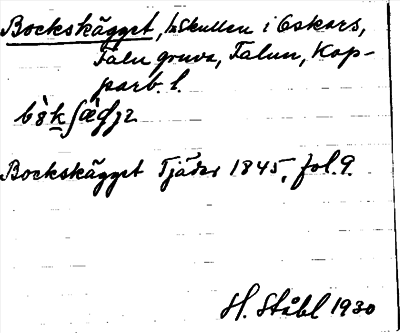 Bockskägget, hskullen i Oskars,
Falu gruva, Falun, Kop-
parb. l.
Bockskägget Tjäder 1845, fol. 9.
H. Ståhl 1930